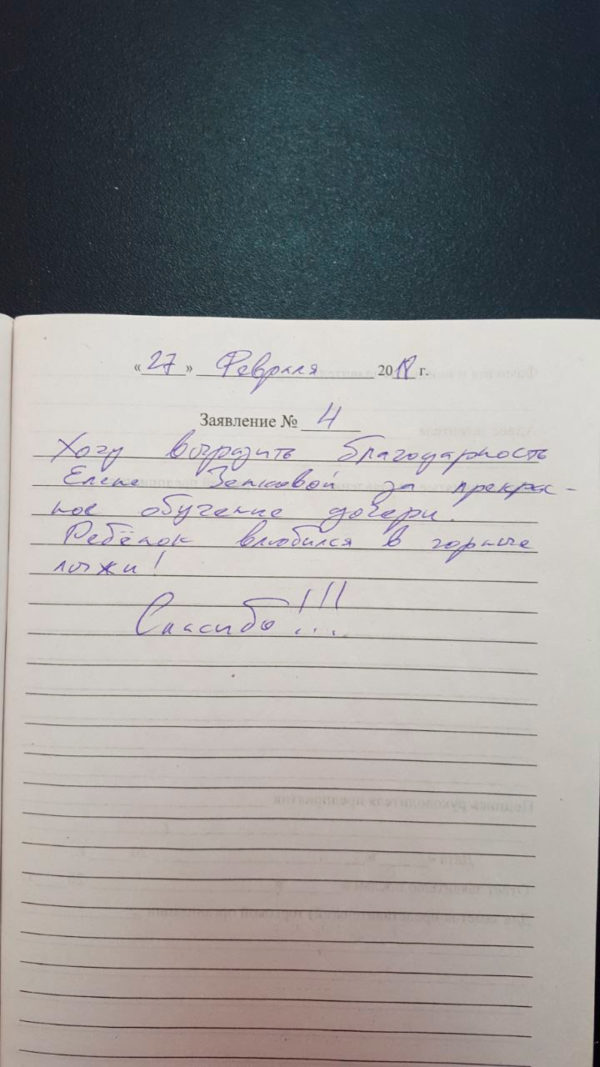 «27» Февраля 2018 г.
Заявление № 4
Хочу выразить благодарность
Елене Зенковой за прекрас-
ное обучение дочери.
Ребёнок влюбился в горные
лыжи!
Спасибо!!!...